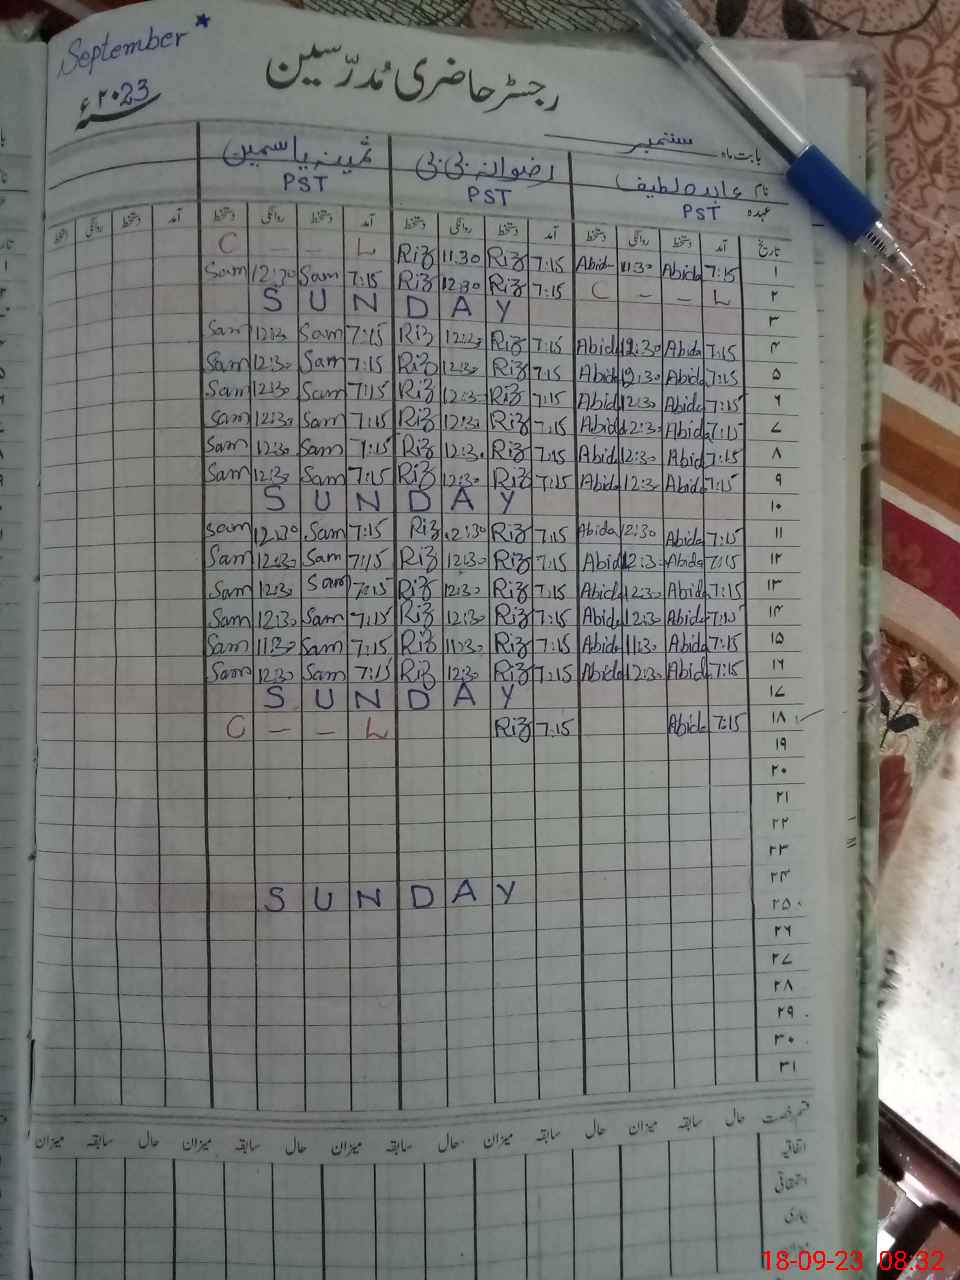 September *
۲۰23ء
رجسٹر حاضری مُدرّسین
بابت ماہ ستمبر
نام عابدہ لطیف رضوانہ بی بی ثمینہ یاسمین
عہدہ PST PST PST
تاریخ آمد دستخط روانگی دستخط آمد دستخط روانگی دستخط آمد دستخط روانگی دستخط آمد دستخط روانگی دستخط
۱ 7:15 Abida 11:30 Abid 7:15 Riz 11.30 Riz C - - L
۲ C - - L 7:15 Riz 12:30 Riz 7:15 Sam 12:30 Sam
۳ SUNDAY
۴ 7:15 Abida 12:30 Abida 7:15 Riz 12:30 Riz 7:15 Sam 12:30 Sam
۵ 7:15 Abida 12:30 Abida 7:15 Riz 12:30 Riz 7:15 Sam 12:30 Sam
۶ 7:15 Abida 12:30 Abida 7:15 Riz 12:30 Riz 7:15 Sam 12:30 Sam
۷ 7:15 Abida 12:30 Abida 7:15 Riz 12:30 Riz 7:15 Sam 12:30 Sam
۸ 7:15 Abida 12:30 Abida 7:15 Riz 12:30 Riz 7:15 Sam 12:30 Sam
۹ 7:15 Abida 12:30 Abida 7:15 Riz 12:30 Riz 7:15 Sam 12:30 Sam
۱۰ SUNDAY
۱۱ 7:15 Abida 12:30 Abida 7:15 Riz 12:30 Riz 7:15 Sam 12:30 Sam
۱۲ 7:15 Abida 12:30 Abida 7:15 Riz 12:30 Riz 7:15 Sam 12:30 Sam
۱۳ 7:15 Abida 12:30 Abida 7:15 Riz 12:30 Riz 7:15 Sam 12:30 Sam
۱۴ 7:15 Abida 12:30 Abida 7:15 Riz 12:30 Riz 7:15 Sam 12:30 Sam
۱۵ 7:15 Abida 11:30 Abida 7:15 Riz 11:30 Riz 7:15 Sam 11:30 Sam
۱۶ 7:15 Abida 12:30 Abida 7:15 Riz 12:30 Riz 7:15 Sam 12:30 Sam
۱۷ SUNDAY
۱۸ 7:15 Abida 7:15 Riz C - - L
۱۹
۲۰
۲۱
۲۲
۲۳
۲۴ SUNDAY
۲۵
۲۶
۲۷
۲۸
۲۹
۳۰
۳۱
قسم رخصت حال سابقہ میزان حال سابقہ میزان حال سابقہ میزان حال سابقہ میزان حال سابقہ میزان
اتفاقیہ
استحقاقی
بیماری
18-09-23 08:32